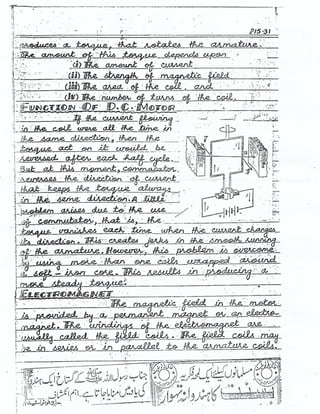 215-31
produces a torque, that rotates the armature.
The amount of this torque depends upon
(i) The amount of current
(ii) The strength of magnetic field
(iii) The area of the coil, and
(iv) The number of turns of the coil.
FUNCTION OF D.C. MOTOR
If the current flowing
in the coil were all the time in
the same direction, then the
torque act on it would be
reversed after each half cycle.
But at this moment, commutator,
reverses the direction of current
that keeps the torque always
in the same direction. A little
problem arises due to the use
of commutator, that is, the
torque vanishes each time when the current changes
its direction. This creates jerks in the smooth running
of the armature. However, this problem is overcome
by using more than one coils wrapped around
a soft-iron core. This results in producing a
more steady torque.
ELECTROMAGNET
The magnetic field in the motor
is provided by a permanent magnet or an electro-
magnet. The windings of the electromagnet are
usually called the field coils. The field coils may
be in series or in parallel to the armature coils.
مسلمانوں کیلئے لمحہ فکریہ
جناب رسول اللہ ﷺ کے گستاخ ایک ہندو
کا ہندوانہ تہوار
کی یاد میں منایا جاتا ہے